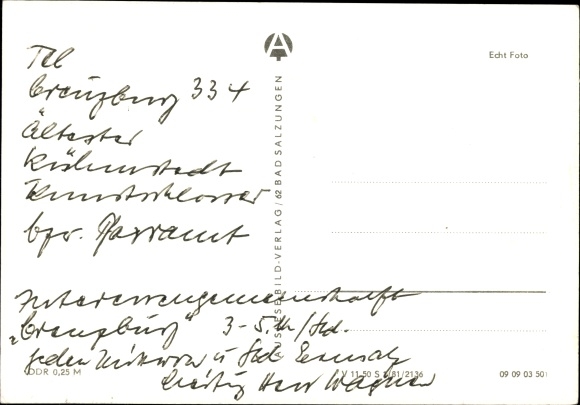 Tel
Creuzburg 334
Ältester
Kühnstedt
Kunstschlosser
bzw. Pfarramt
Interessengemeinschaft
„Creuzburg" 3-5.
jeden Mittwoch u
Herr Wagner
Echt Foto
AUSLESE-BILD-VERLAG / 62 BAD SALZUNGEN
DDR 0,25 M
V 11-50 S 1/81/2136
09 09 03 501